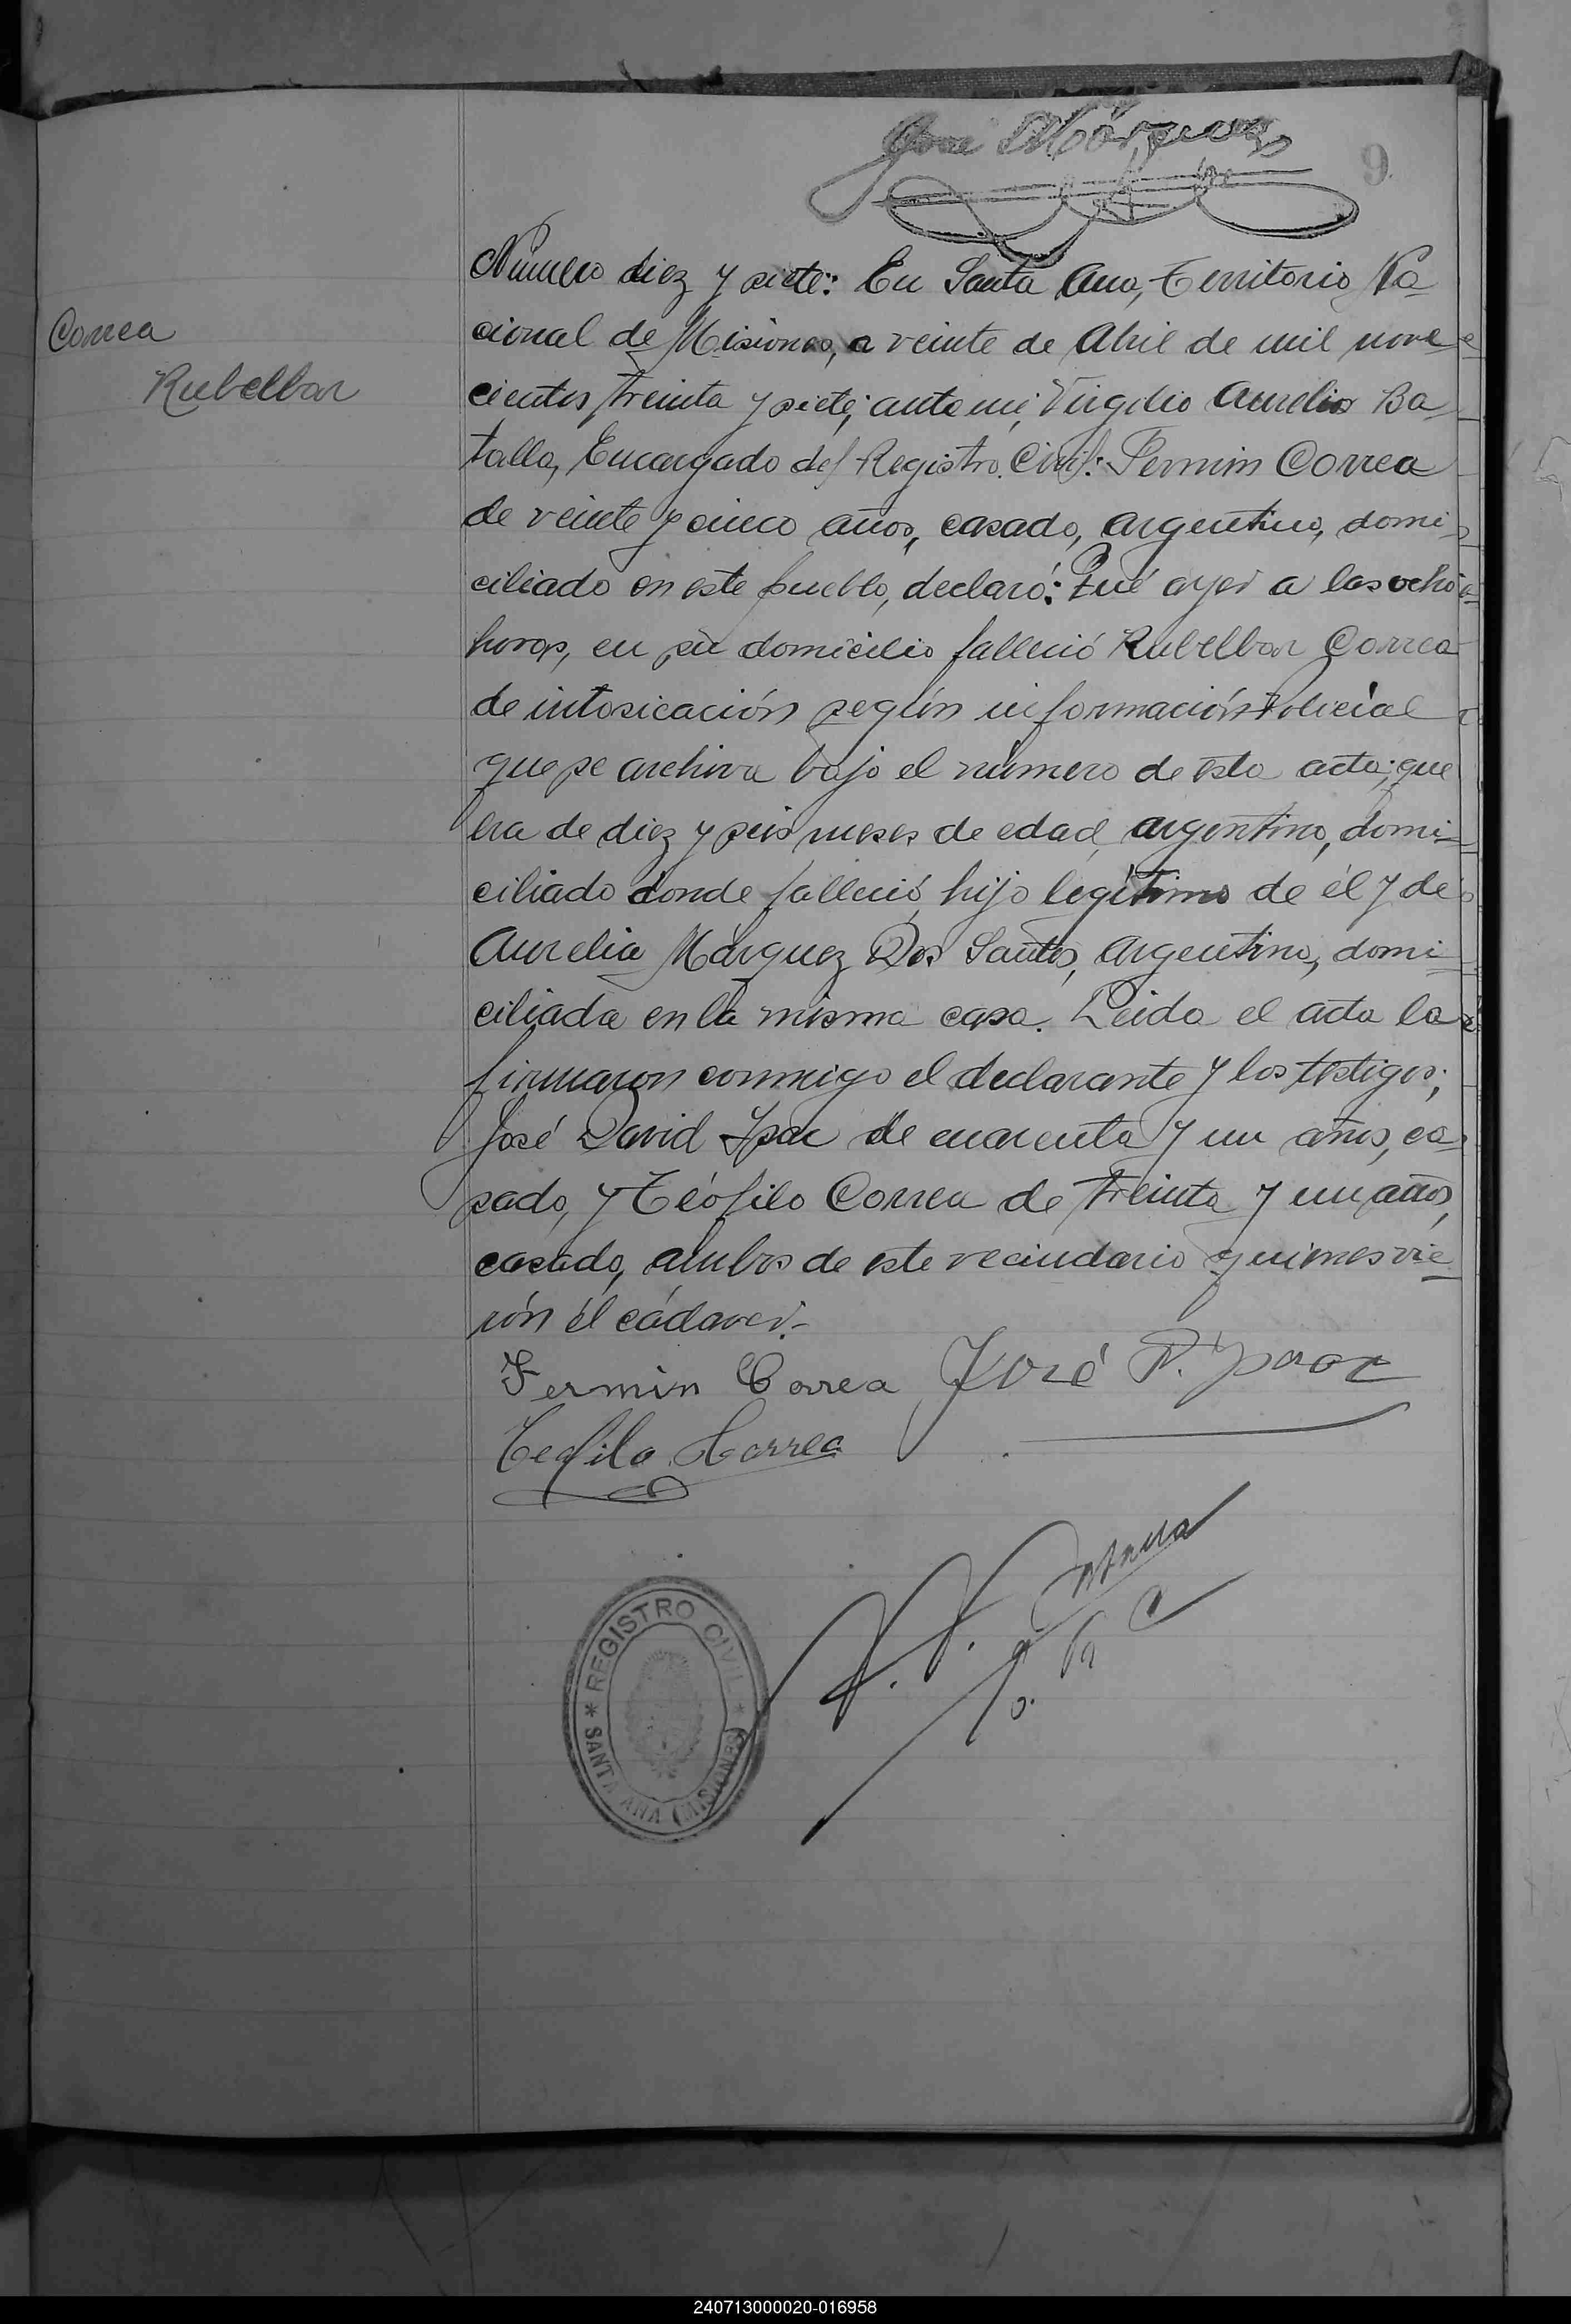 José Márquez
9
Correa
Rubelbar
Número diez y siete: En Santa Ana, Territorio Na-
cional de Misiones, a veinte de Abril de mil nove-
cientos treinta y siete; ante mi, Virgilio Aurelio Ba-
talla, Encargado del Registro Civil: Fermin Correa
de veinte y cinco años, casado, argentino, domi-
ciliado en este pueblo, declaró: Qué ayer a las ocho
horas, en su domicilio falleció Rubelbar Correa
de intosicación según información Policial
que se archiva bajo el número de esta acta; que
era de diez y seis meses de edad, argentino, domi-
ciliado donde falleció, hijo legítimo de él y de
Aurelia Márquez Dos Santos, Argentina, domi-
ciliada en la misma casa. Leida el acta la
firmaron conmigo el declarante y los testigos;
José David Ipar de cuarenta y un años, ca-
sado, y Teófilo Correa de treinta y un años,
casado, ambos de este vecindario quienes vie-
rón él cádaver.-
Fermin Correa José D.
Teofilo Correa
V. A. Batalla
REGISTRO CIVIL
* SANTA ANA (MISIONES) *
240713000020-016958